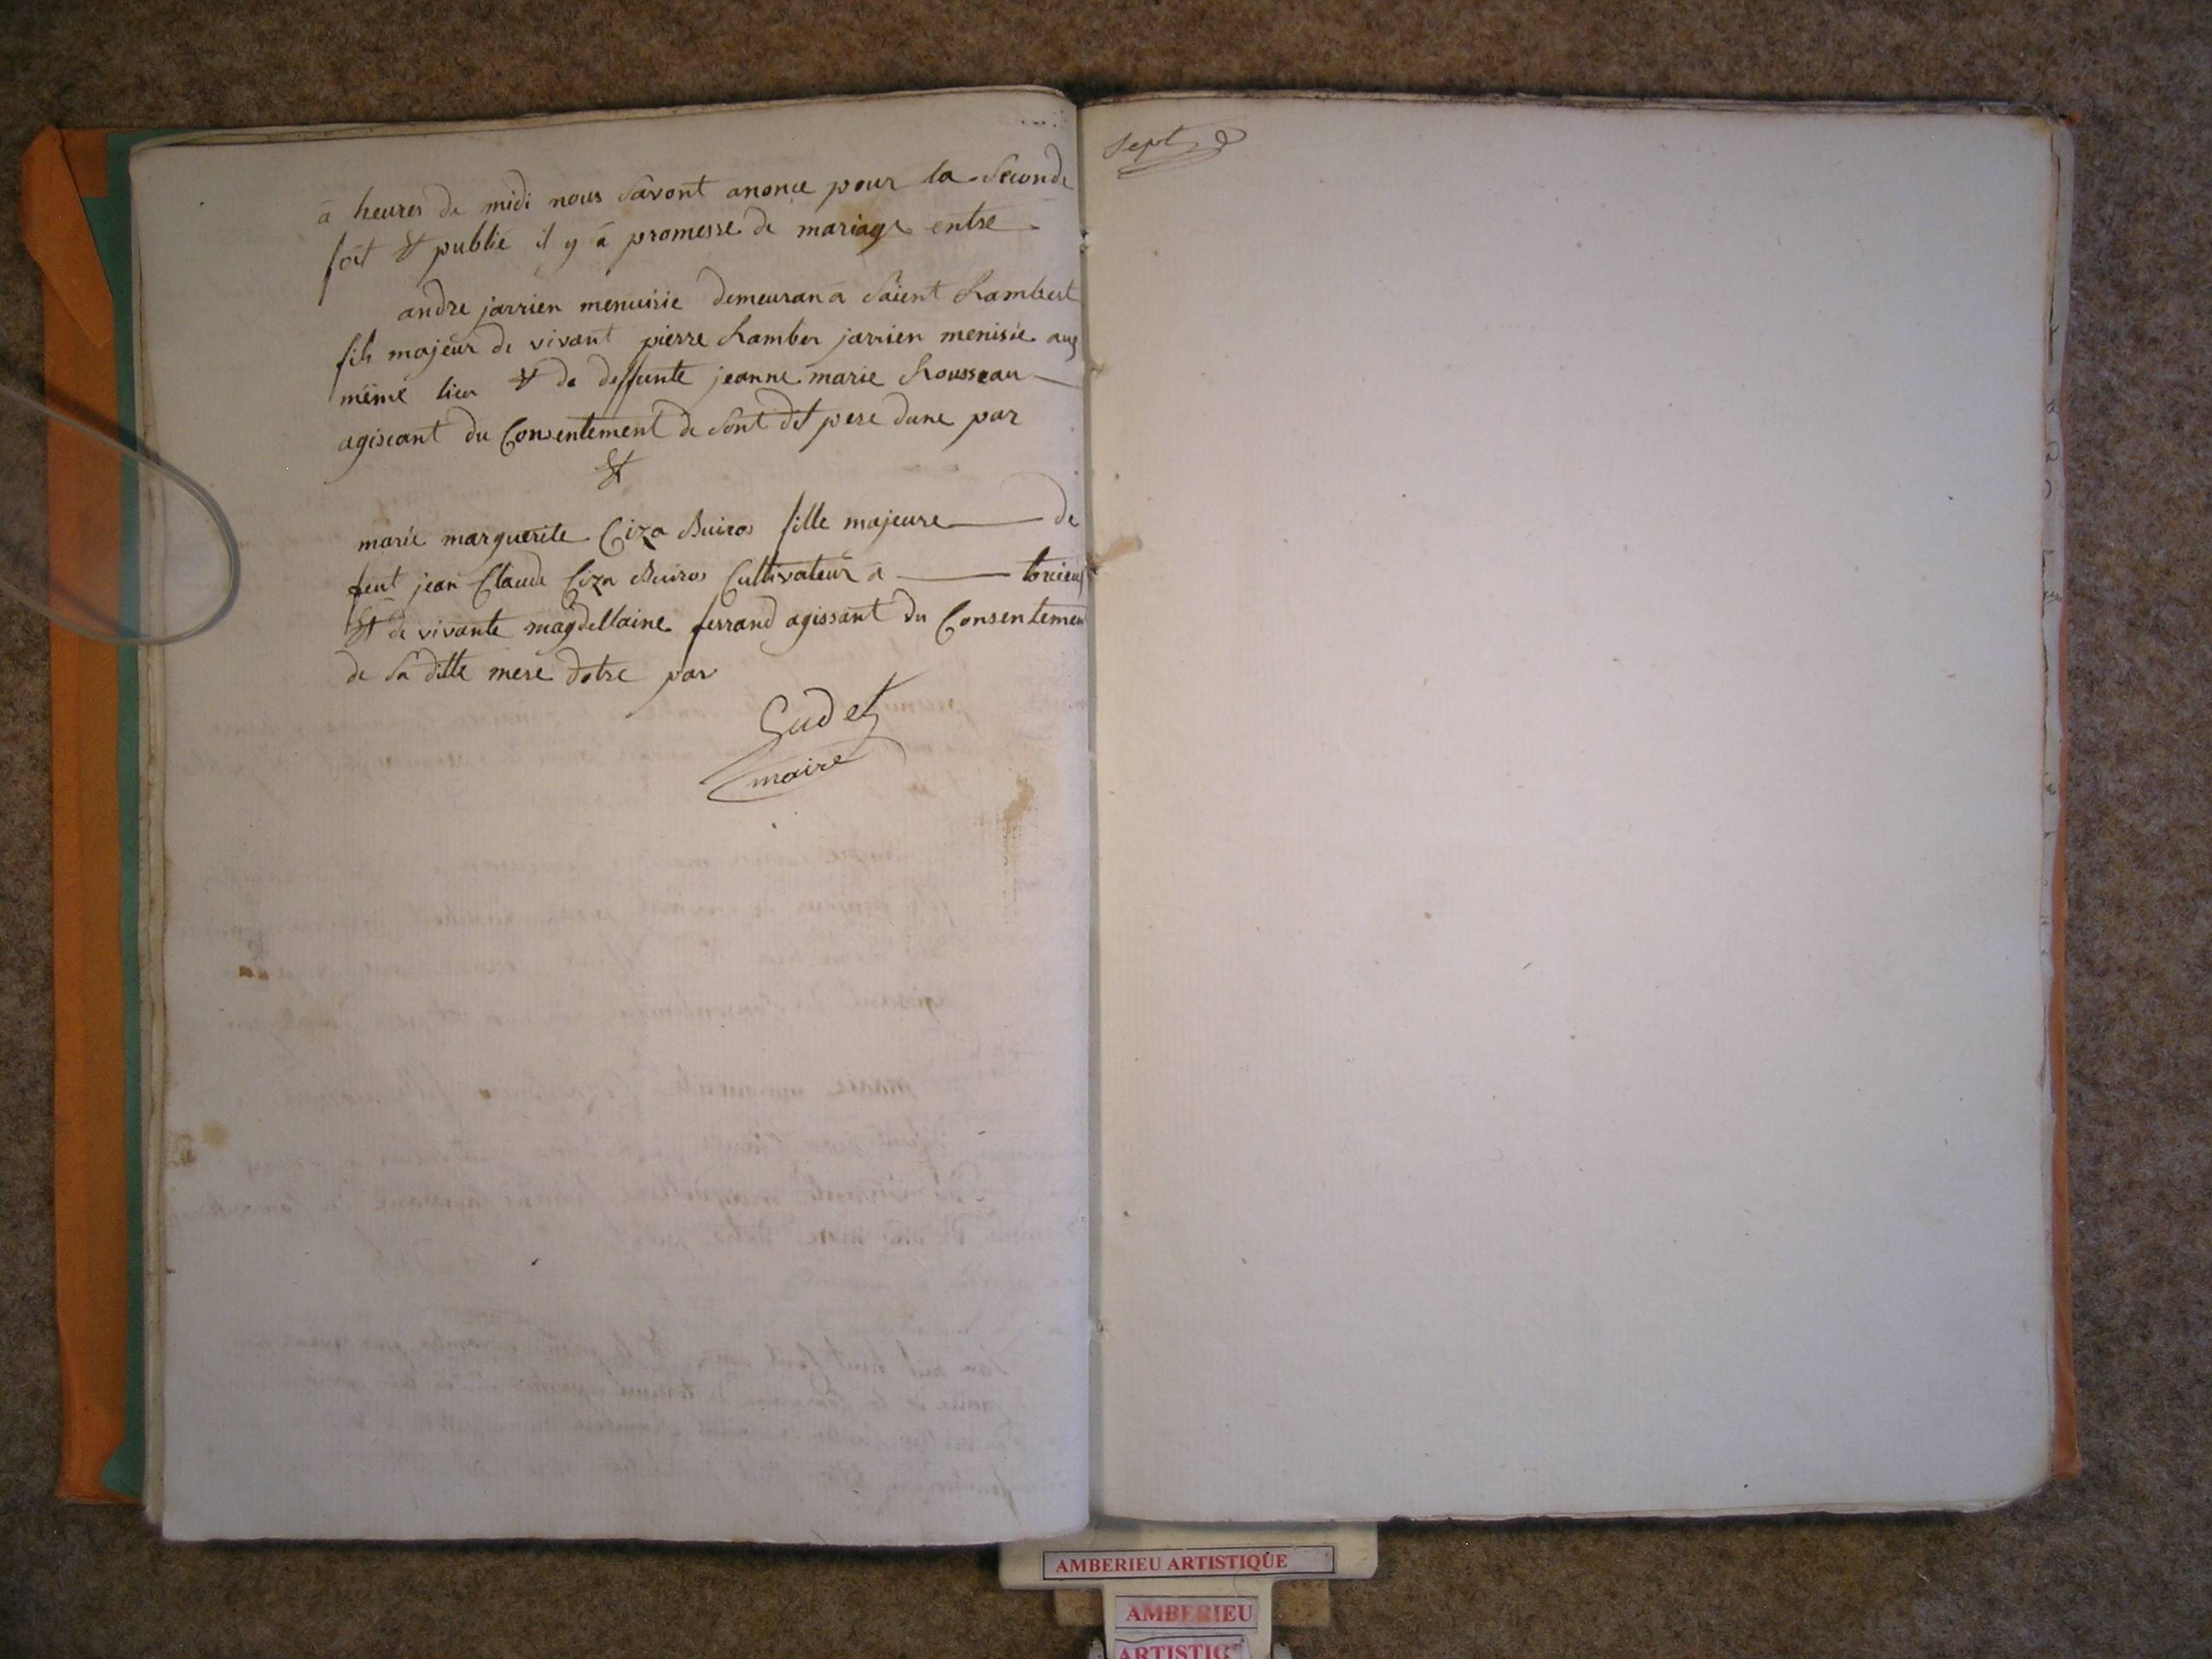 à heures de midi nous Savont anonce pour la Seconde
foit et publié il y à promesse de mariage entre
andre jarrien menuisie demeuran à Saient Rambert
fils majeur de vivant pierre Ramber jarrien menisie aux
même lieu et de deffunte jeanne marie Rousseau
agiscant du Consentement de Sont dit pere dune par
et
marie marguerite Ciza Buiros fille majeure de
feut jean Claude Ciza Buiros Cultivateur à torcieux
et de vivante magdellaine ferrand agissant du Consentemen
de Sa ditte mere dotre par
Gudet
maire
Sept
AMBERIEU ARTISTIQUE
AMBERIEU
ARTISTIQ